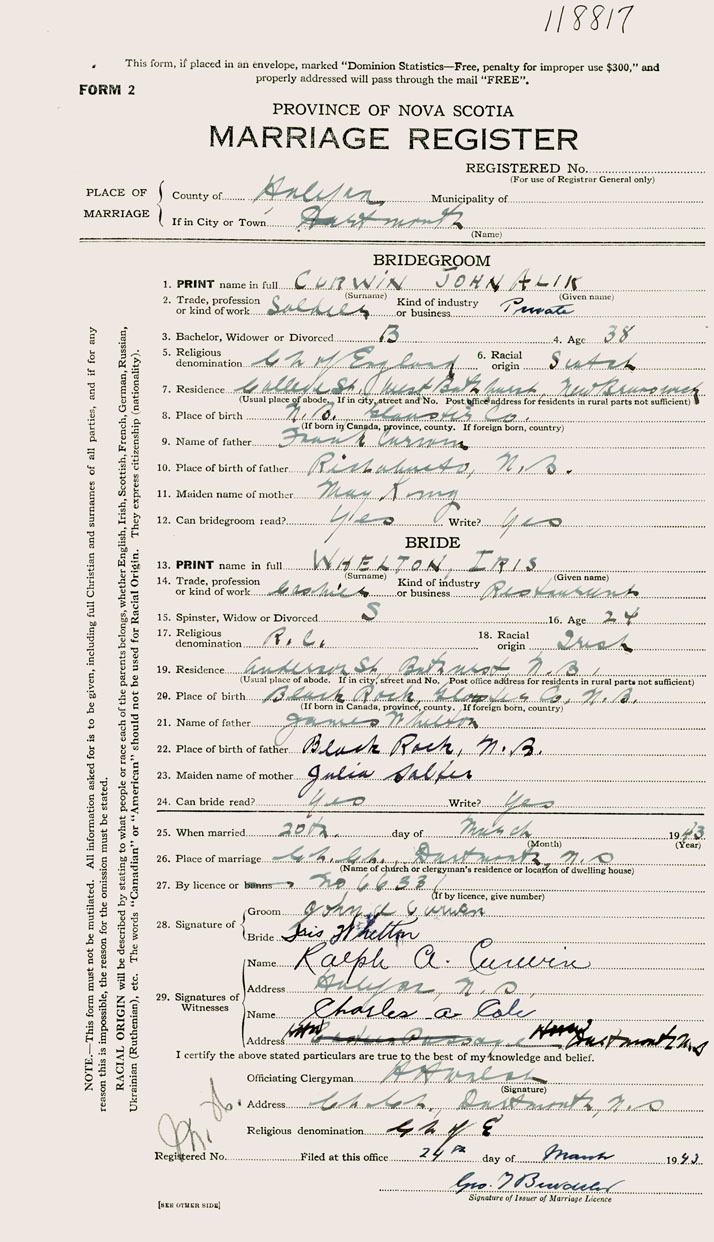 118817
This form, if placed in an envelope, marked “Dominion Statistics—Free, penalty for improper use $300,” and
properly addressed will pass through the mail “FREE”.
FORM 2
PROVINCE OF NOVA SCOTIA
MARRIAGE REGISTER
REGISTERED No.
(For use of Registrar General only)
PLACE OF MARRIAGE
County of Halifax Municipality of
If in City or Town Dartmouth
(Name)
BRIDEGROOM
1. PRINT name in full CURWIN JOHN ALIK
(Surname) (Given name)
2. Trade, profession or kind of work Soldier Kind of industry or business Private
3. Bachelor, Widower or Divorced B 4. Age 38
5. Religious denomination Ch of England 6. Racial origin Scotch
7. Residence College St, West Bathurst, New Brunswick
(Usual place of abode. If in city, street and No. Post office address for residents in rural parts not sufficient)
8. Place of birth N.B. Co.
(If born in Canada, province, county. If foreign born, country)
9. Name of father Frank Curwin
10. Place of birth of father N.B.
11. Maiden name of mother May King
12. Can bridegroom read? Yes Write? Yes
BRIDE
13. PRINT name in full WHELTON, IRIS
(Surname) (Given name)
14. Trade, profession or kind of work Cashier Kind of industry or business Restaurant
15. Spinster, Widow or Divorced S 16. Age 24
17. Religious denomination R.C. 18. Racial origin Irish
19. Residence Anderson St, Bathurst N.B.
(Usual place of abode. If in city, street and No. Post office address for residents in rural parts not sufficient)
20. Place of birth Black Rock, Co, N.B.
(If born in Canada, province, county. If foreign born, country)
21. Name of father James Whelton
22. Place of birth of father Black Rock, N.B.
23. Maiden name of mother Julia
24. Can bride read? Yes Write? Yes
25. When married 20th day of March 1943
(Month) (Year)
26. Place of marriage Ch. Ch., Dartmouth, N.S
(Name of church or clergyman's residence or location of dwelling house)
27. By licence or banns No 6633
(If by licence, give number)
28. Signature of
Groom John A Curwin
Bride Iris Whelton
29. Signatures of Witnesses
Name Ralph A. Curwin
Address Halifax, N.S.
Name Charles A Cole
Address Dartmouth N.S
I certify the above stated particulars are true to the best of my knowledge and belief.
Officiating Clergyman
(Signature)
Address Ch. Ch., Dartmouth, N.S
Religious denomination Ch of E
Registered No. Filed at this office 24th day of March 1943
Geo. T
Signature of Issuer of Marriage Licence
[SEE OTHER SIDE]
NOTE.—This form must not be mutilated. All information asked for is to be given, including full Christian and surnames of all parties, and if for any
reason this is impossible, the reason for the omission must be stated.
RACIAL ORIGIN will be described by stating to what people or race each of the parents belongs, whether English, Irish, Scottish, French, German, Russian,
Ukrainian (Ruthenian), etc. The words “Canadian” or “American” should not be used for Racial Origin. They express citizenship (nationality).